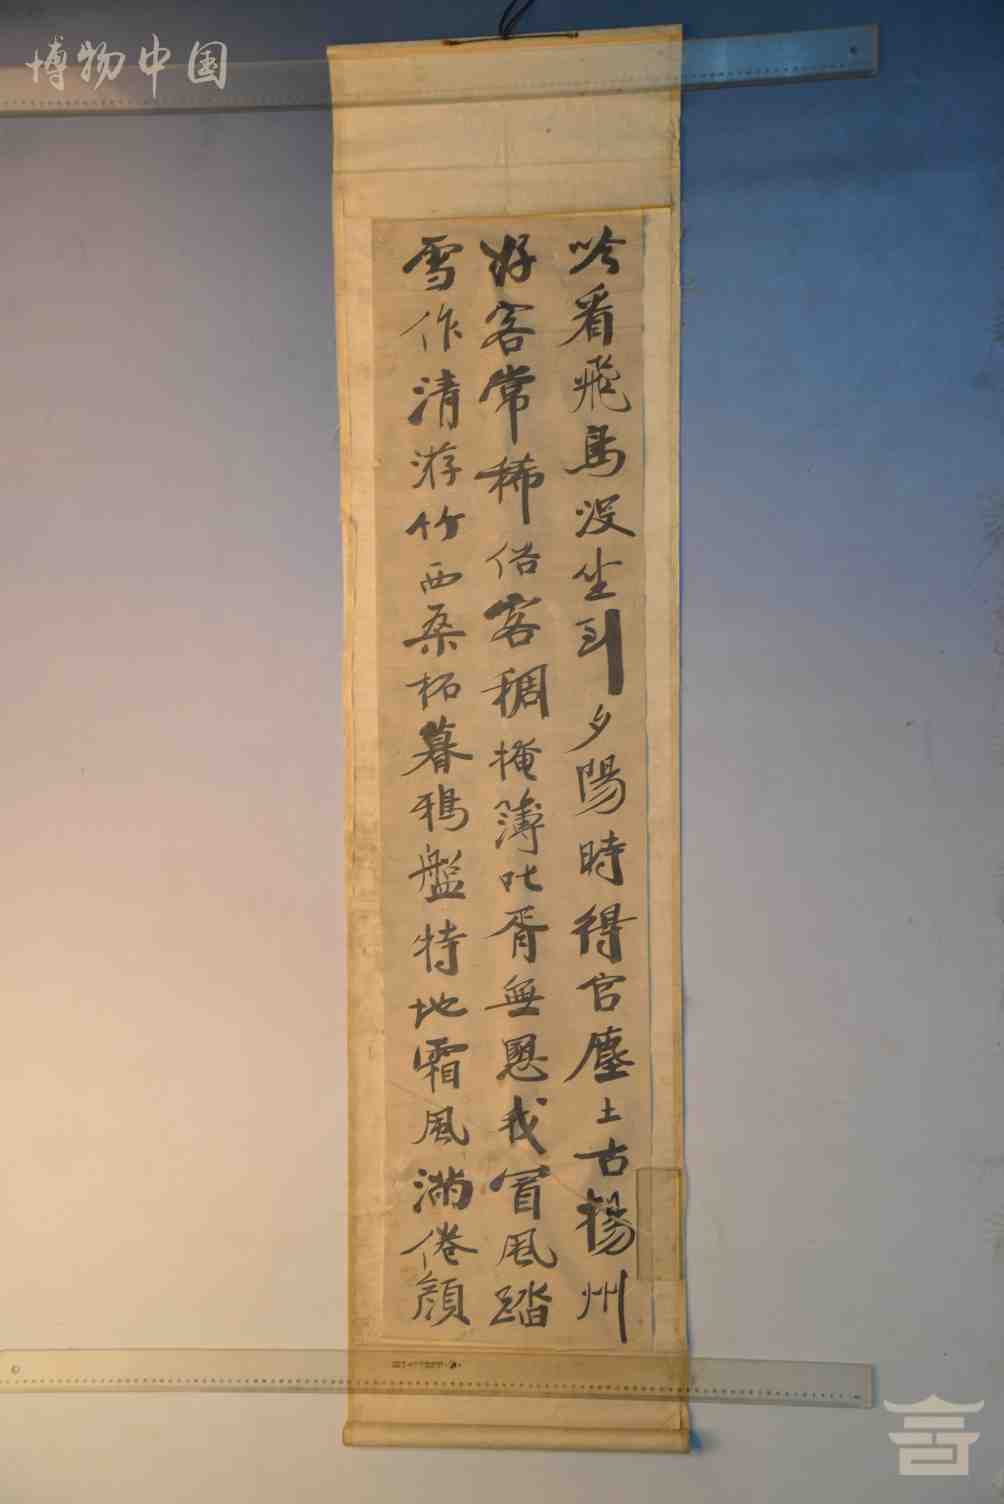 博物中国
吟看飛鳥没坐到夕陽時得官塵土古揚州
好客常稀俗客稠掩簿叱胥無慁我冒風踏
雪作清游竹西桑柘暮鴉盤特地霜風滿倦顔